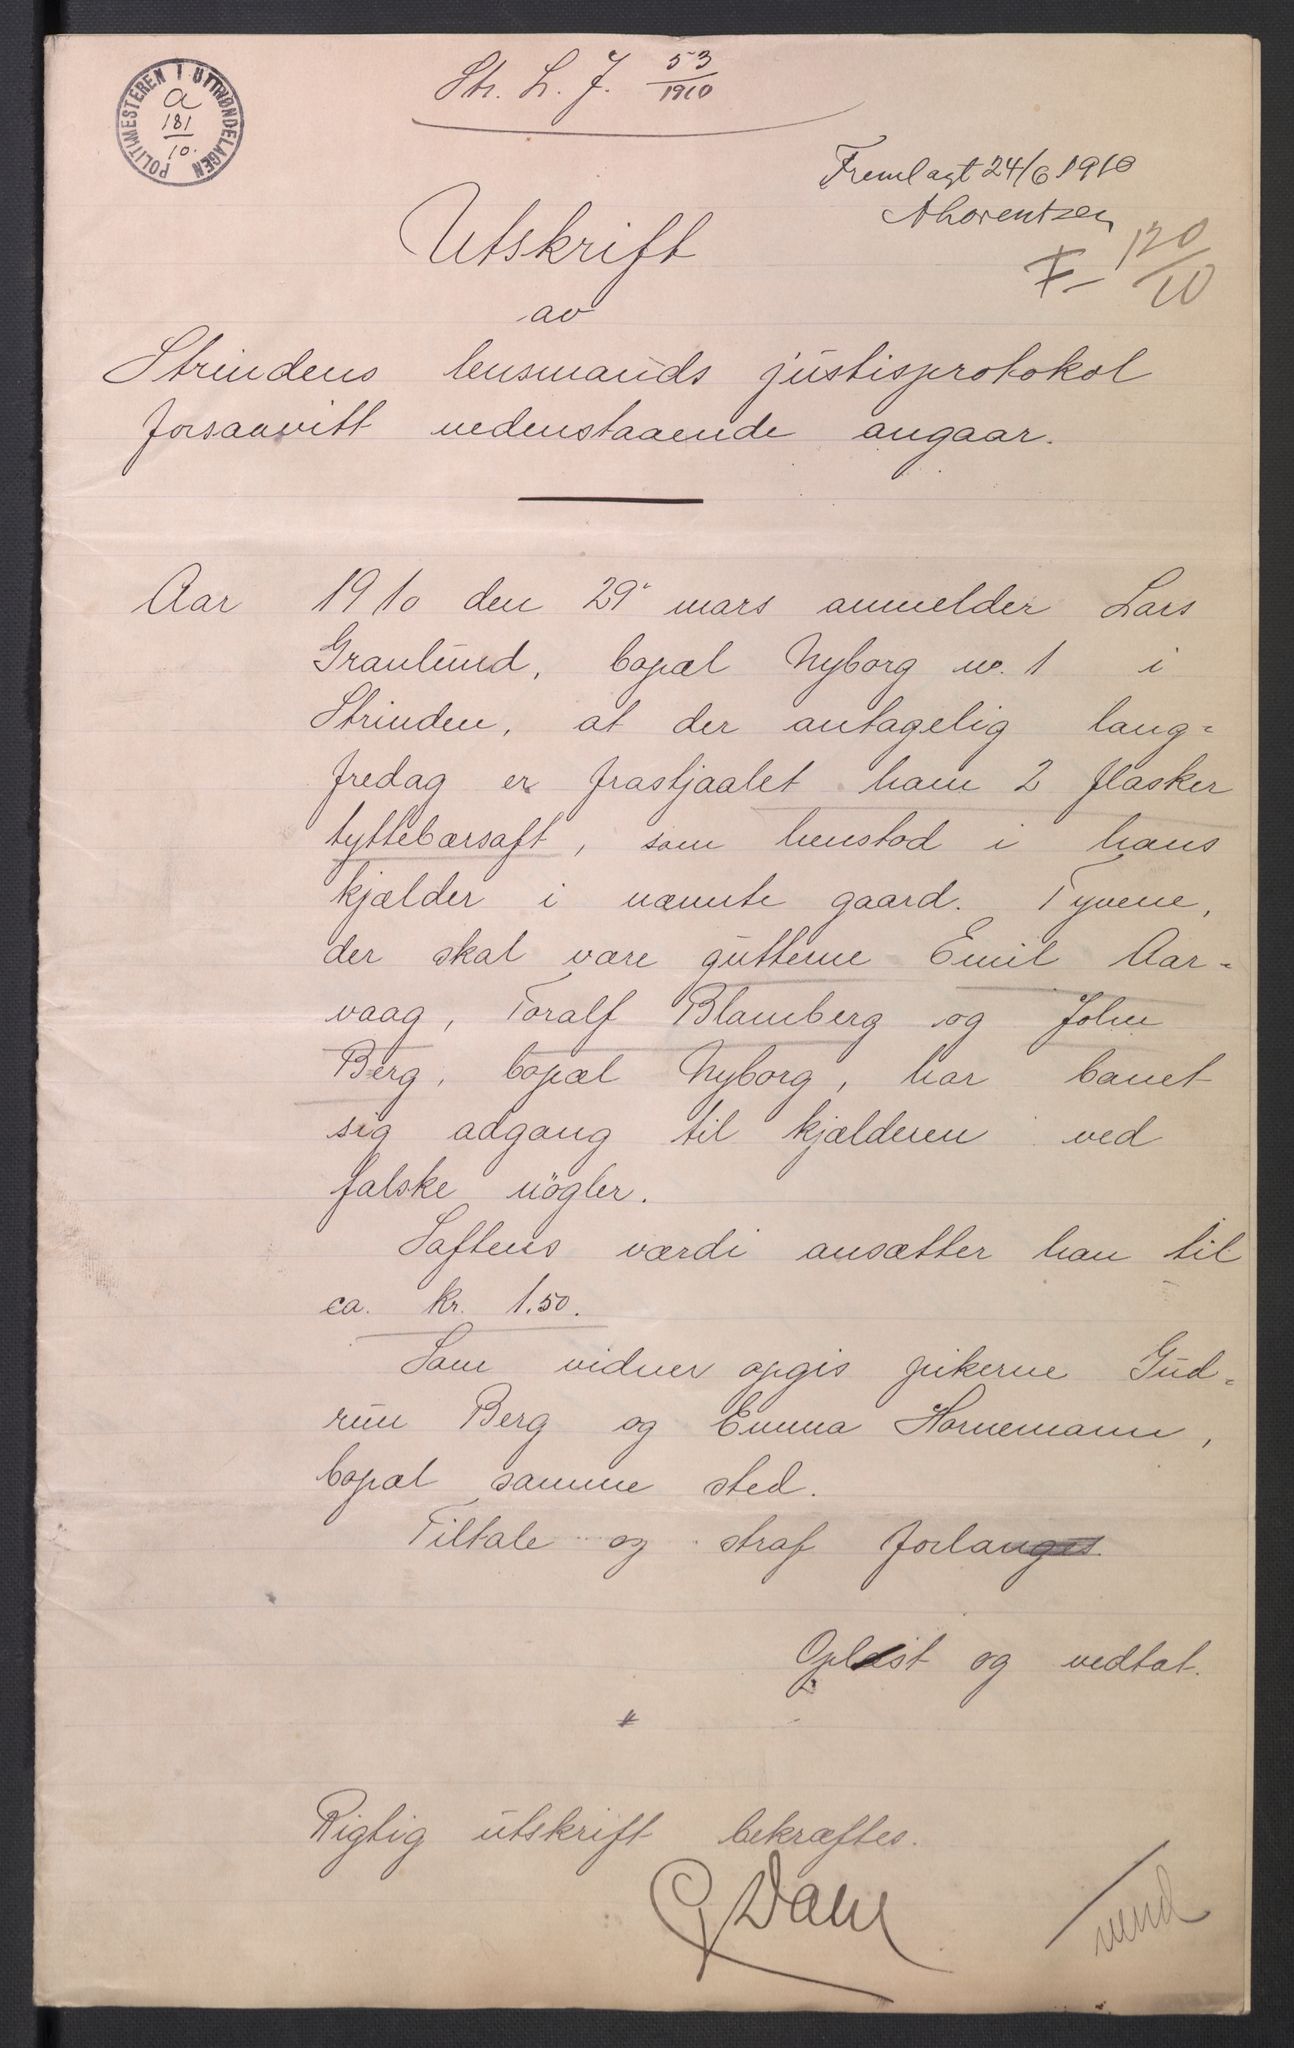 POLITIMESTEREN I UTTRØNDELAGEN
a
181
10.
Str. L. J. 53
1910
Fremlagt 24/6 1910
ALorentzen
F- 120
10
Utskrift
av
Strindens lensmands justisprotokol
forsaavitt nedenstaaende angaar.
Aar 1910 den 29' mars anmelder Lars
Granlund, bopæl Nyborg no. 1 i
Strinden, at der antagelig lang=
fredag er frastjaalet ham 2 flasker
tyttebærsaft, som henstod i hans
kjælder i nævnte gaard. Tyvene,
der skal være gutterne Emil Aar=
vaag, Toralf Blamberg og John
Berg, bopæl Nyborg, har banet
sig adgang til kjælderen ved
falske nögler.
Saftens værdi ansætter han til
ca. kr. 1.50.
Som vidner opgis pikerne Gud=
run Berg og Emma Hornemann,
bopæl samme sted.
Tiltale og straf forlanges
Oplæst og vedtat.
Rigtig utskrift bekræftes.
G Dahl
vend